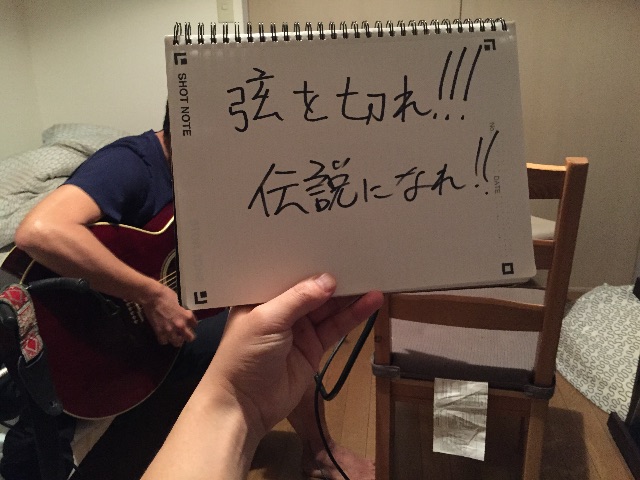 SHOT NOTE
弦を切れ!!!
伝説になれ!!
DATE